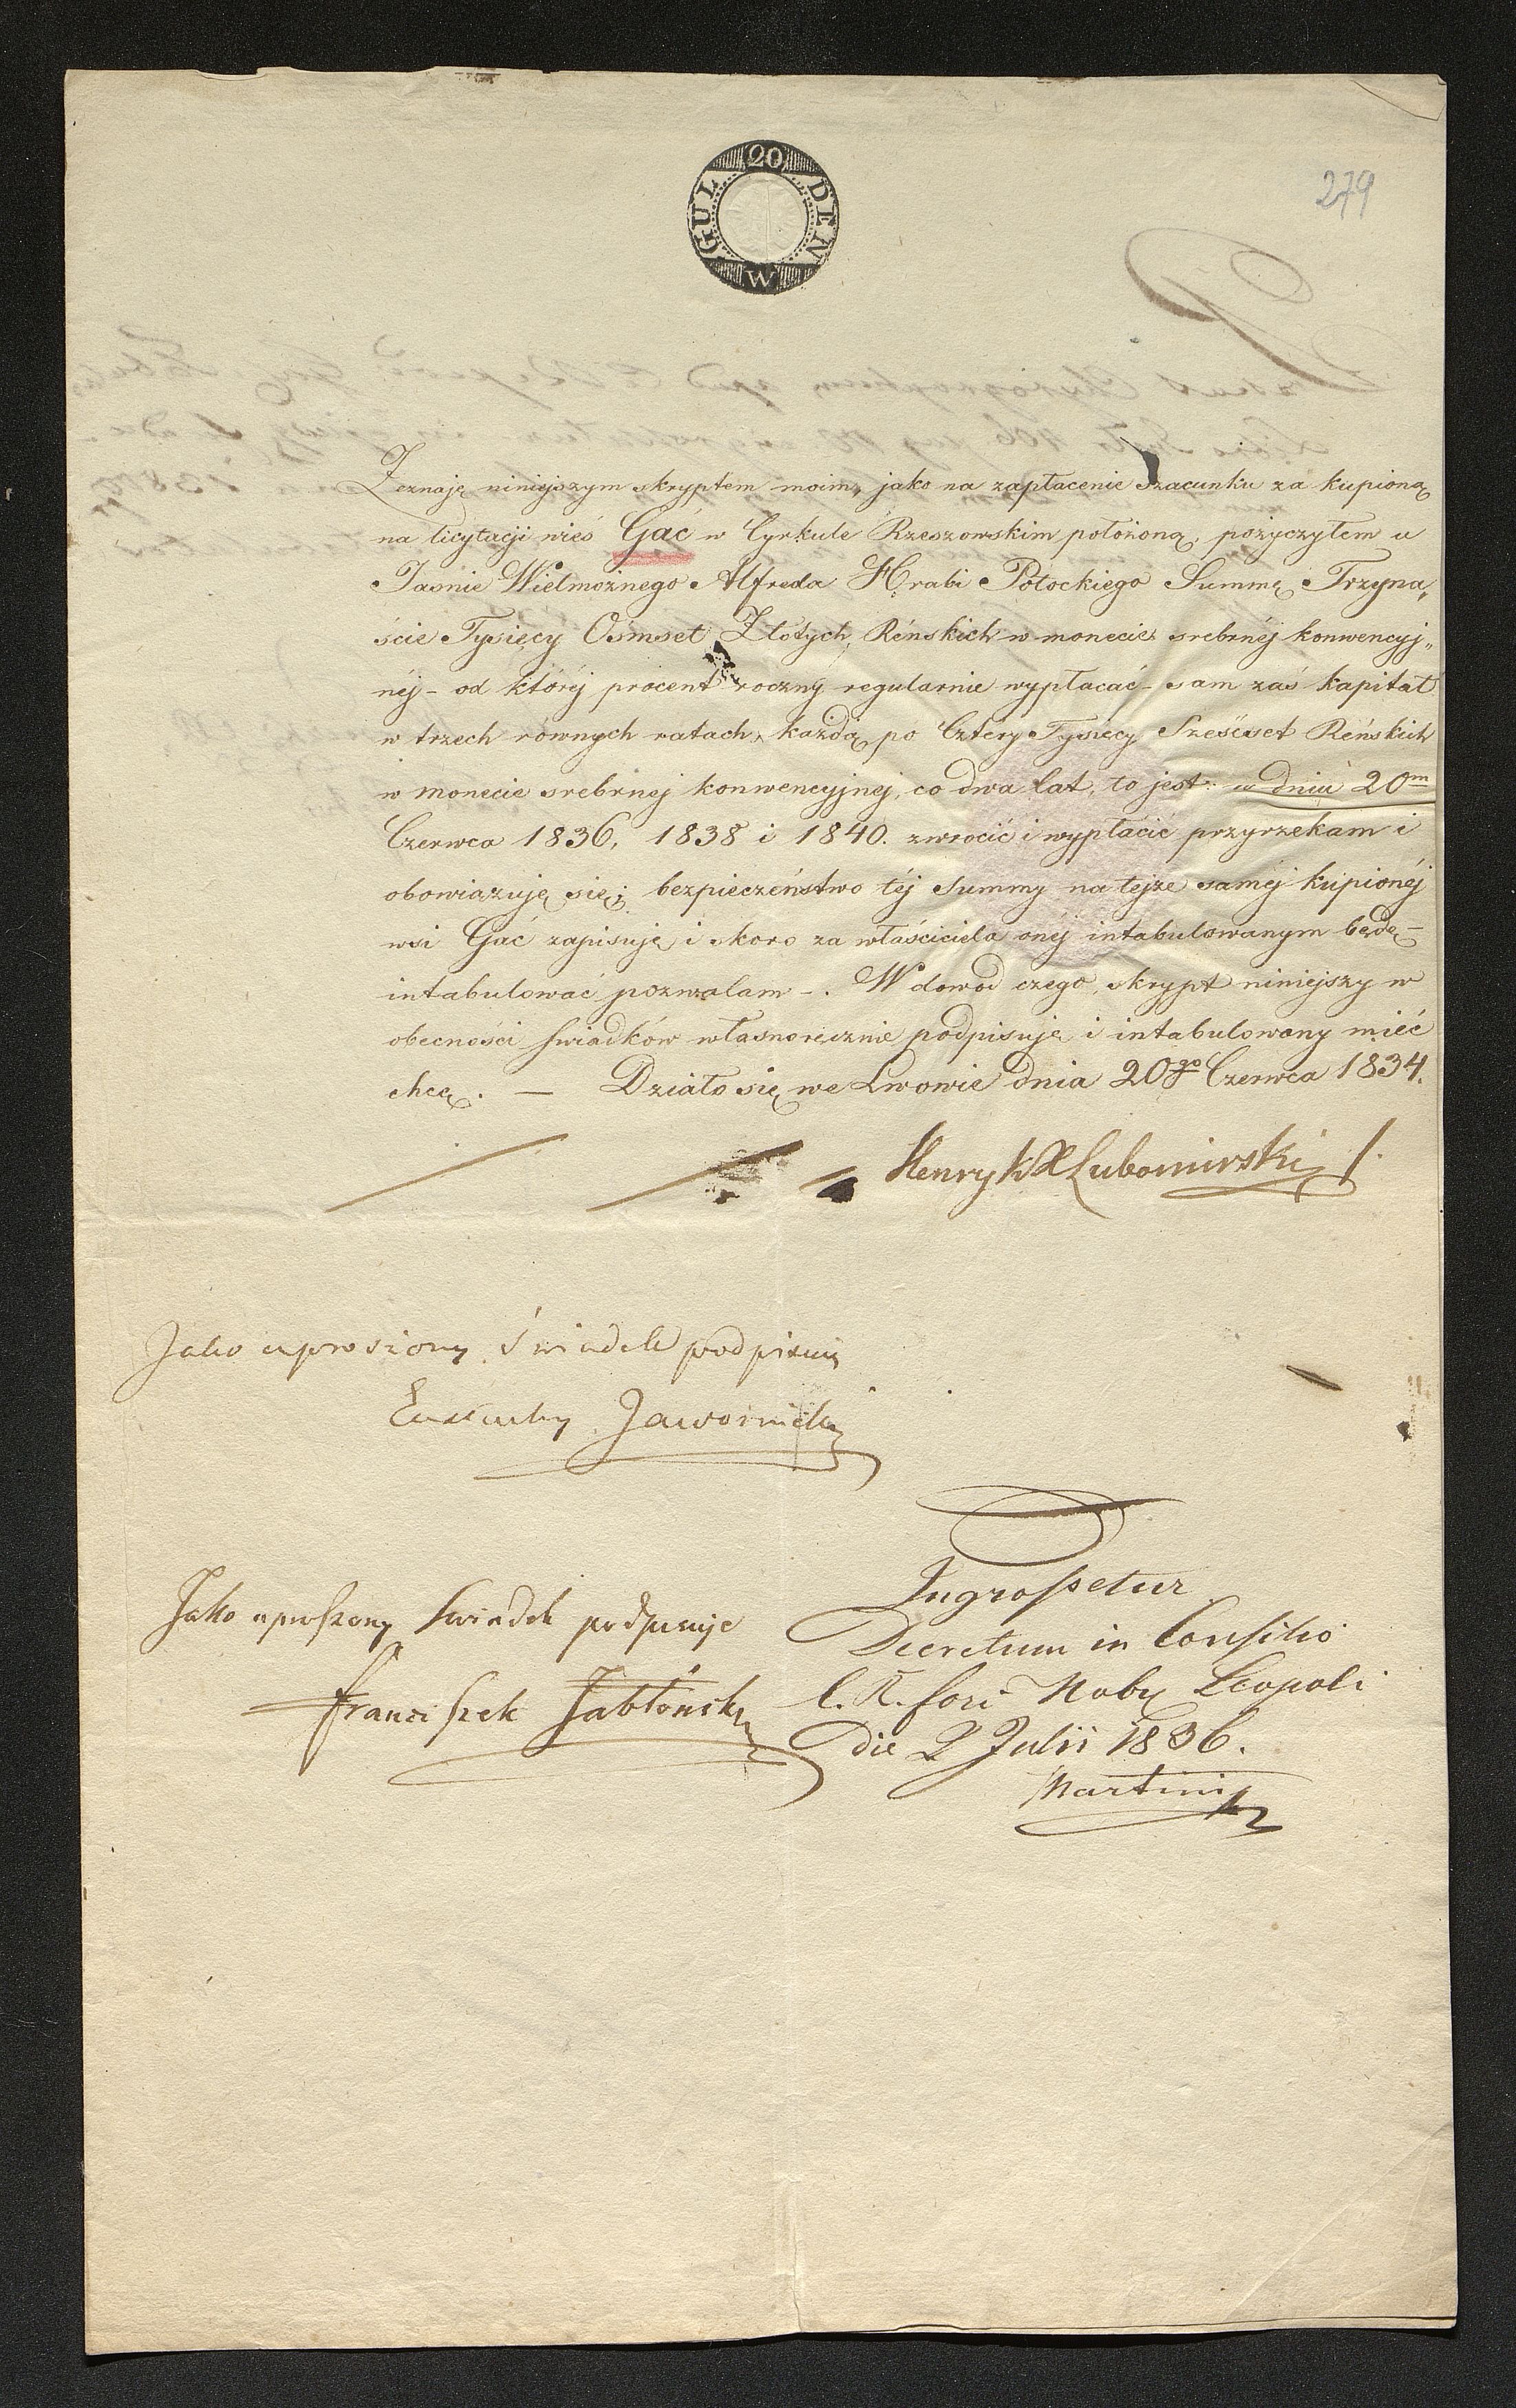 20 GULDEN W
279
Zeznaję niniejszym skryptem moim, jako na zapłacenie Szacunku za kupioną
na licytacji wieś Gać w Cyrkule Rzeszowskim położoną, pożyczyłem u
Jaśnie Wielmożnego Alfreda Hrabi Potockiego Summę Trzyna„
ście Tysięcy Ośmset Złotych Reńskich w monecie srebrnéj konwencyj„
néj – od któréj procent roczny regularnie wypłacać – sam zaś kapitał
w trzech równych ratach, każdą po Cztery Tysięcy Sześćset Reńskich
w monecie srebrnej konwencyjnej, co dwa lat, to jest: w dniu 20m
Czerwca 1836, 1838 i 1840. zwrócić i wypłacić przyrzekam i
obowiązuję się; bezpieczeństwo téj Summy na tejże saméj kupionéj
wsi Gać zapisuję i skoro za właściciela onéj intabulowanym będę –
intabulować pozwalam –. W dowód czego skrypt niniejszy w
obecności świadków własnoręcznie podpisuję i intabulowany mieć
chcę. — Działo się we Lwowie dnia 20go Czerwca 1834.
Henryk X Lubomirski
Jako uproszony Świadek podpisuię
Eustachy Jawornicki
Jako uproszony świadek podpisuje
Franciszek Jabłoński
Ingrossetur
Decretum in Consilio
C. R. fori Nob. Leopoli
die 2 Julii 1836.
Martini